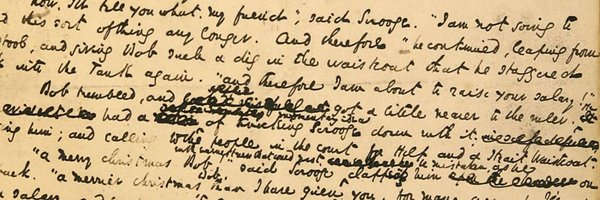 now. I'll tell you what, my friend", said Scrooge. "I am not going to
this sort of thing any longer. And therefore" he continued, leaping from
stool, and giving Bob such a dig in the waistcoat that he staggered
the Tank again. "and therefore I am about to raise your salary!"
Bob trembled, and got a little nearer to the ruler.
had a momentary idea of knocking Scrooge down with it;
him; and calling to the people in the court for help and a Strait Waistcoat.
"a merry Christmas Bob", said Scrooge with an earnestness that could not be mistaken, as he clapped him on
"a merrier Christmas Bob, than I have given you, for many a
salary, and